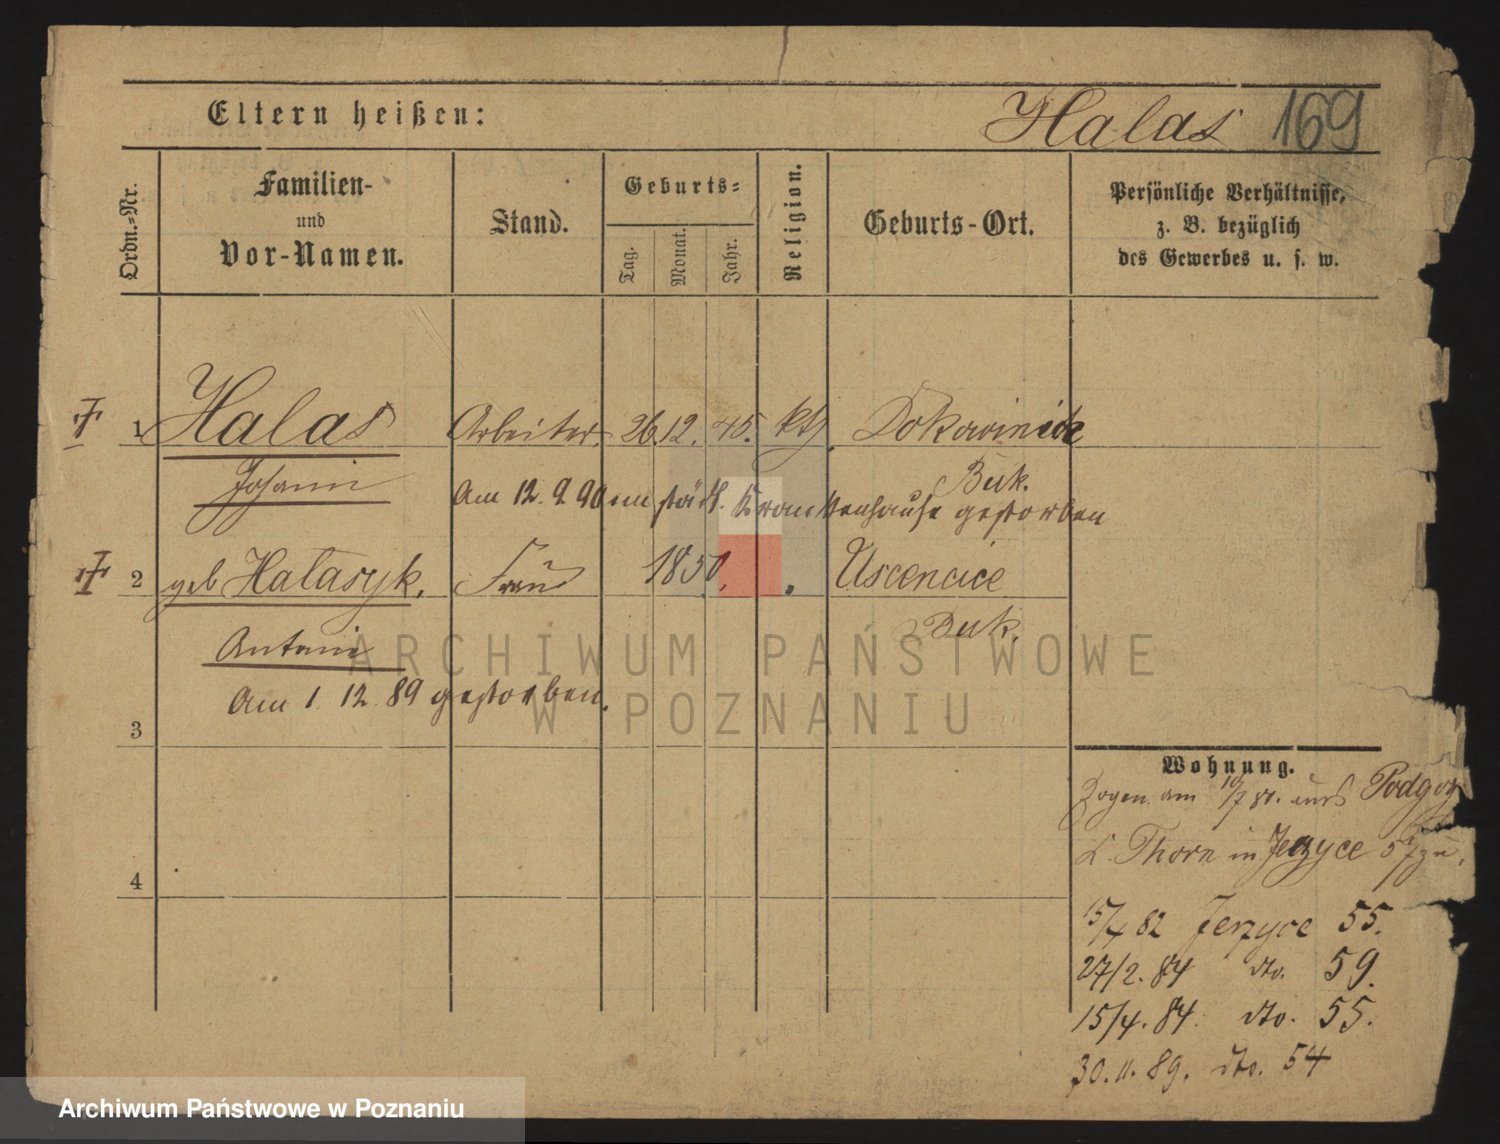 Eltern heißen:
Halas 169
Ordn.-Nr.
Familien-
und
Vor-Namen.
Stand.
Geburts-
Tag.
Monat.
Jahr.
Religion.
Geburts-Ort.
Persönliche Verhältnisse,
z. B. bezüglich
des Gewerbes u. s. w.
1 Halas Arbeiter. 26. 12. 45. kth.
Johann Buk.
Am 12. 9 90 im städt. Krankenhause gestorben
2 geb Halasyk. Frau 1850. Uscencice
Antonie Buk.
Am 1. 12. 89 gestorben.
3
4
Wohnung.
Zogen am 10/7 81. aus Podgorz
K. Thorn in Jerzyce 57 zu.
15/4 82 Jerzyce 55.
27/2. 84 dto. 59.
15/4. 84. dto. 55.
30. 11. 89. dto. 54
ARCHIWUM PAŃSTWOWE
W POZNANIU
Archiwum Państwowe w Poznaniu